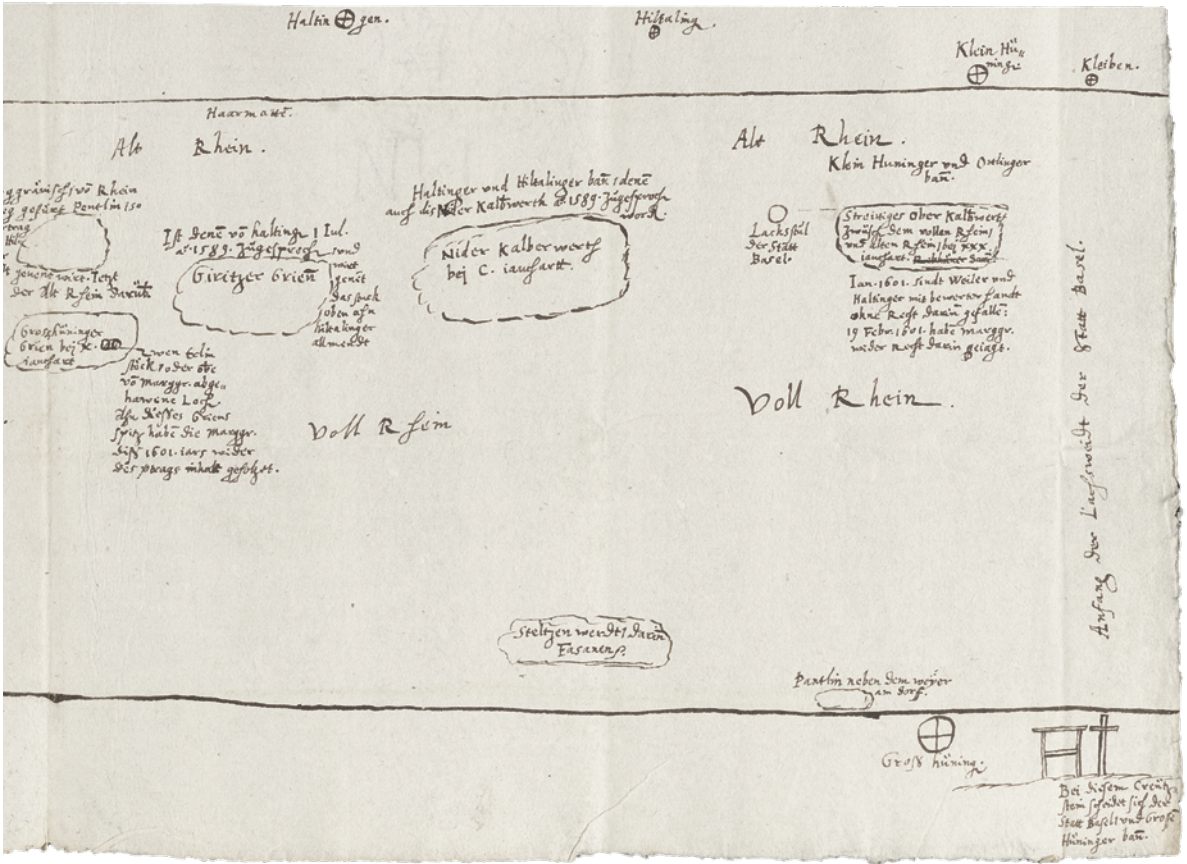 Haltingen.
Hiltaling.
Klein Hü„
ninge
Kleiben.
Haarmattē.
Alt Rhein.
Alt Rhein.
Klein Huninger vnd Ostlinger
bañ.
vō Rhein
gefürt Pentlin so
jenent wirt. Jetzt
der Alt Rhein darüb
Ist denē vō halting 1 Iul.
aº 1589. zügesproch vnd
wirt
genēt
das stuck
oben ahn
hiltalinger
allmendt
Giritzer Grien
Haltinger vnd Hiltalinger bañ, denē
auch dis Nider Kalbwerth aº 1589. zügesproch
word.
Nider Kalberwerth
bej C. iauchartt.
Lachsstůl
der Statt
Basel.
Streitiges Ober Kalbwert
zwüsch dem vollen Rhein
vnd alten Rhein, bej xxx.
iauchart.
Ian. 1601. sindt Weiler vnd
Haltinger mit bewerter handt
ohne Recht darin gefallē:
19 Febr. 1601. habē marggr.
wider Recht darin geiagt.
Groshüninger
Grien bej X.
iauchart
Zwen
stuck, oder
vō marggr. abge„
hawene Loch
Ahn diesses Griens
spitz habē die marggr.
diss 1601. iars wider
des ptrags inhalt geholzet.
Voll Rhein
Voll Rhein.
Anfang der Lachsweidt der Statt Basel.
Steltzen werdt, darin
Fasanen.
Pantlin neben dem weyer
am dorf.
Gross hüning.
Bei diesem Creütz„
stein scheidet sich der
Statt Basel vnd Grosē
Hüninger bañ.